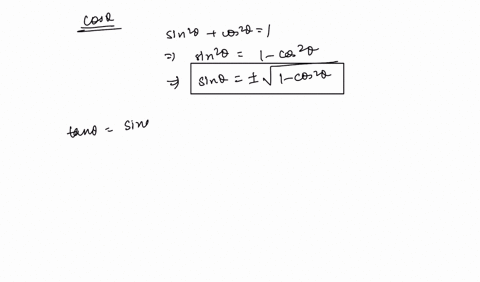 cosθ
sin²θ + cos²θ = 1
⇒ sin²θ = 1 - cos²θ
⇒ sinθ = ± √(1 - cos²θ)
tanθ = sinθ